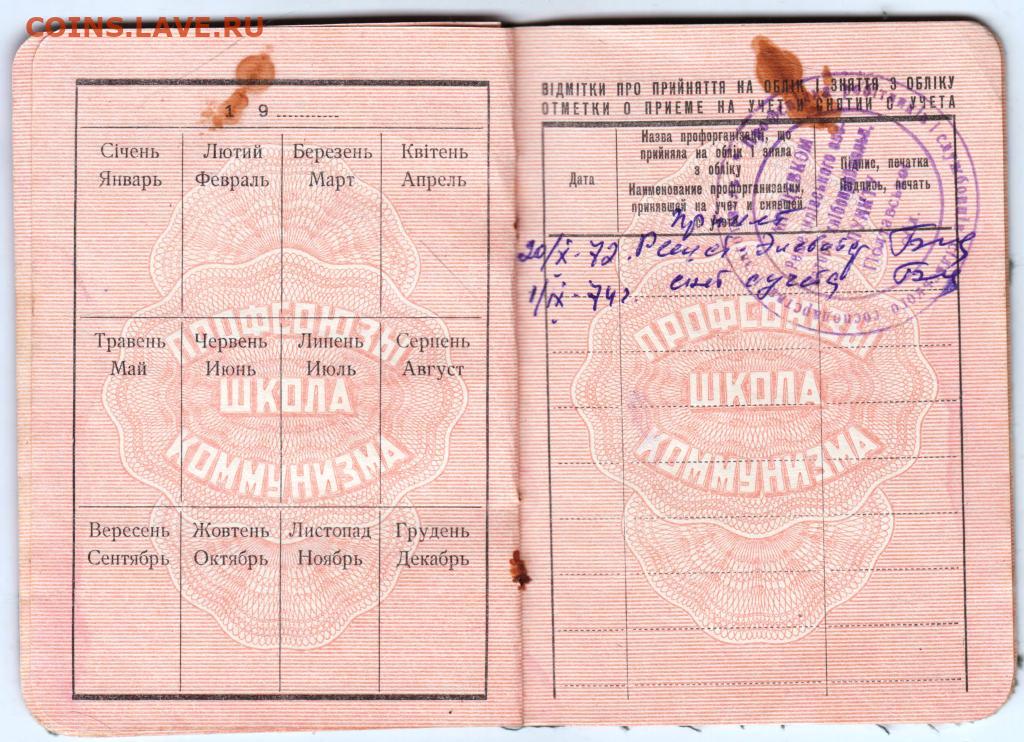 COINS.LAVE.RU
1 9
Січень Лютий Березень Квітень
Январь Февраль Март Апрель
Травень Червень Липень Серпень
Май Июнь Июль Август
Вересень Жовтень Листопад Грудень
Сентябрь Октябрь Ноябрь Декабрь
ПРОФСОЮЗЫ
ШКОЛА
КОММУНИЗМА
ВІДМІТКИ ПРО ПРИЙНЯТТЯ НА ОБЛІК І ЗНЯТТЯ З ОБЛІКУ
ОТМЕТКИ О ПРИЕМЕ НА УЧЕТ И СНЯТИИ С УЧЕТА
Дата
Назва профорганізації, що
прийняла на облік і зняла
з обліку
Наименование профорганизации,
принявшей на учет и снявшей
Підпис, печатка
Подпись, печать
Принят
20/X-72.
1/IX-74г. снят с учета
ПРОФСОЮЗЫ
ШКОЛА
КОММУНИЗМА